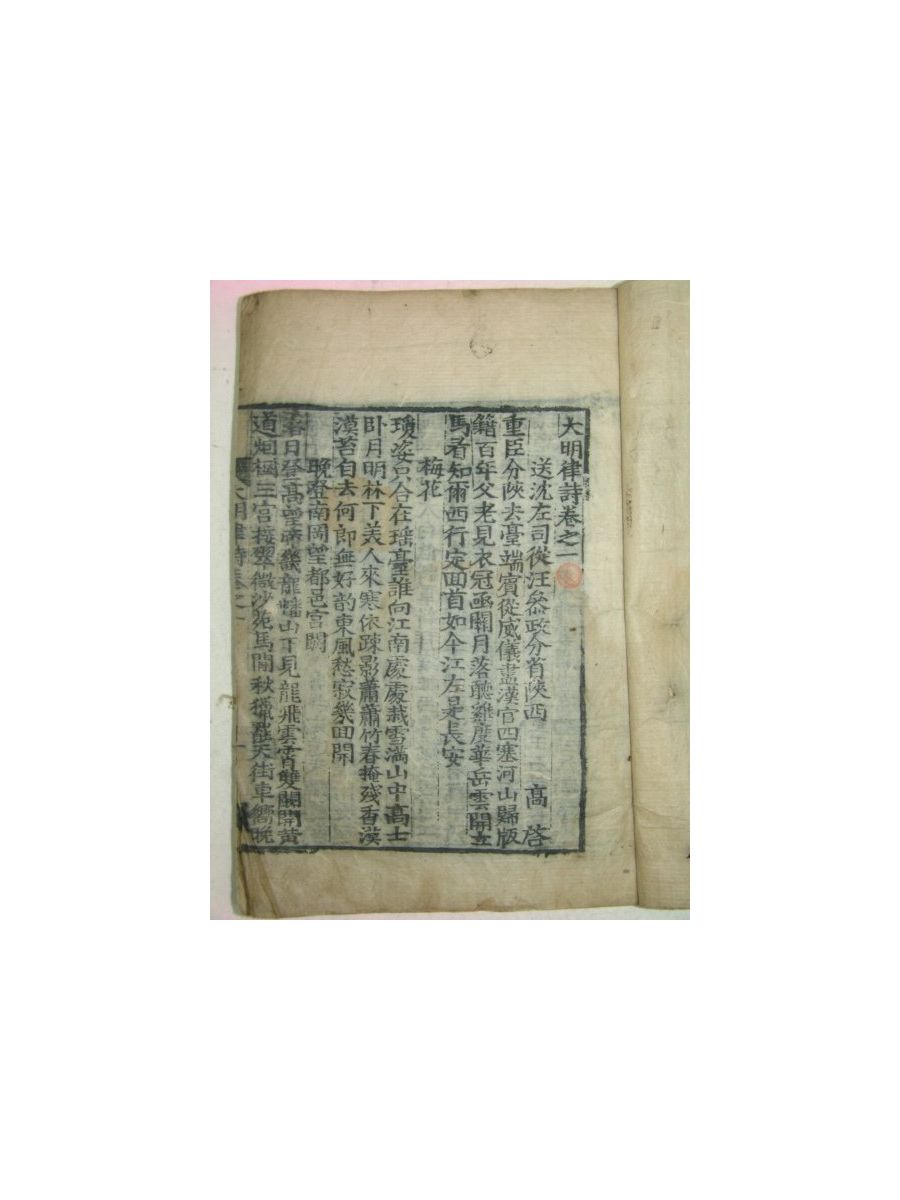 大明律詩卷之一
送沈左司從汪叅政分省陝西 高啓
重臣分陝去臺端賓從威儀盡漢官四塞河山歸版
籍百年父老見衣冠凾關月落聽雞度華岳雲開立
馬看知爾西行定回首如今江左是長安
梅花
瓊姿只合在瑶臺誰向江南處處栽雪滿山中高士
卧月明林下美人來寒依疎影蕭蕭竹春掩殘香漠
漠苔自去何郎無好韵東風愁寂幾回開
晩登南岡望都邑宮闕
日登髙望帝畿龍蟠山下見龍飛雲霄雙闕開黄
道烟樞三宮接翠微沙苑馬閒秋獵天街車嚮晩
大明律詩卷之一